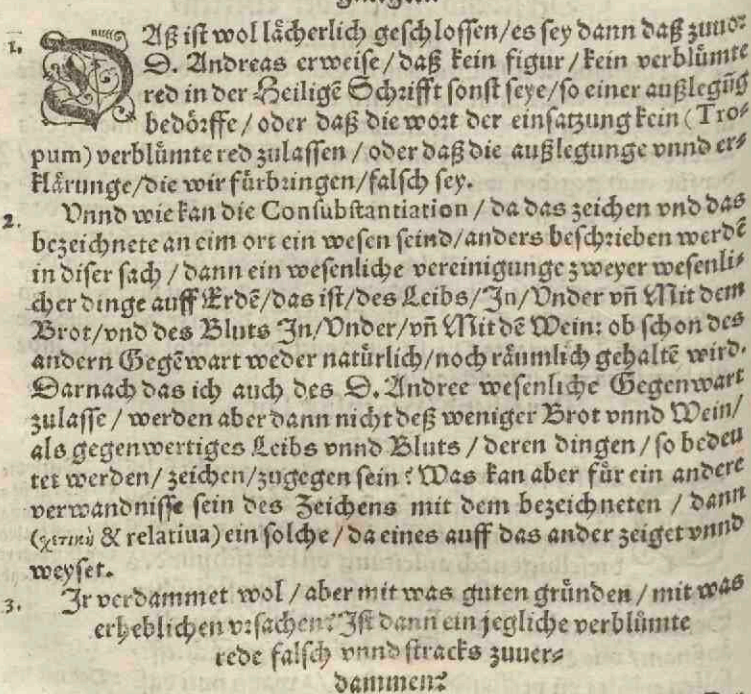 1. DAß ist wol lächerlich geschlossen/es sey dann daß zuuor
D. Andreas erweise/daß kein figur/kein verblümte
red in der Heiligẽ Schrifft sonst seye/so einer außlegũg
bedörffe/oder daß die wort der einsatzung kein (Tro-
pum) verblümte red zulassen/oder daß die außlegunge vnnd er-
klärunge/die wir fürbringen/falsch sey.
2. Vnnd wie kan die Consubstantiation/da das zeichen vnd das
bezeichnete an eim ort ein wesen seind/anders beschrieben werdẽ
in diser sach/dann ein wesenliche vereinigunge zweyer wesenli-
cher dinge auff Erdẽ/das ist/des Leibs/In/Vnder vñ Mit dem
Brot/vnd des Bluts In/Vnder/vñ Mit dẽ Wein: ob schon des
andern Gegẽwart weder natürlich/noch räumlich gehaltẽ wird.
Darnach das ich auch des D. Andree wesenliche Gegenwart
zulasse/werden aber dann nicht deß weniger Brot vnnd Wein/
als gegenwertiges Leibs vnnd Bluts/deren dingen/so bedeu
tet werden/zeichen/zugegen sein? Was kan aber für ein andere
verwandnisse sein des Zeichens mit dem bezeichneten/dann
(χετικὴ & relatiua) ein solche/da eines auff das ander zeiget vnnd
weyset.
3. Ir verdammet wol/aber mit was guten gründen/mit was
erheblichen vrsachen? Ist dann ein jegliche verblümte
rede falsch vnnd stracks zuuer-
dammen?